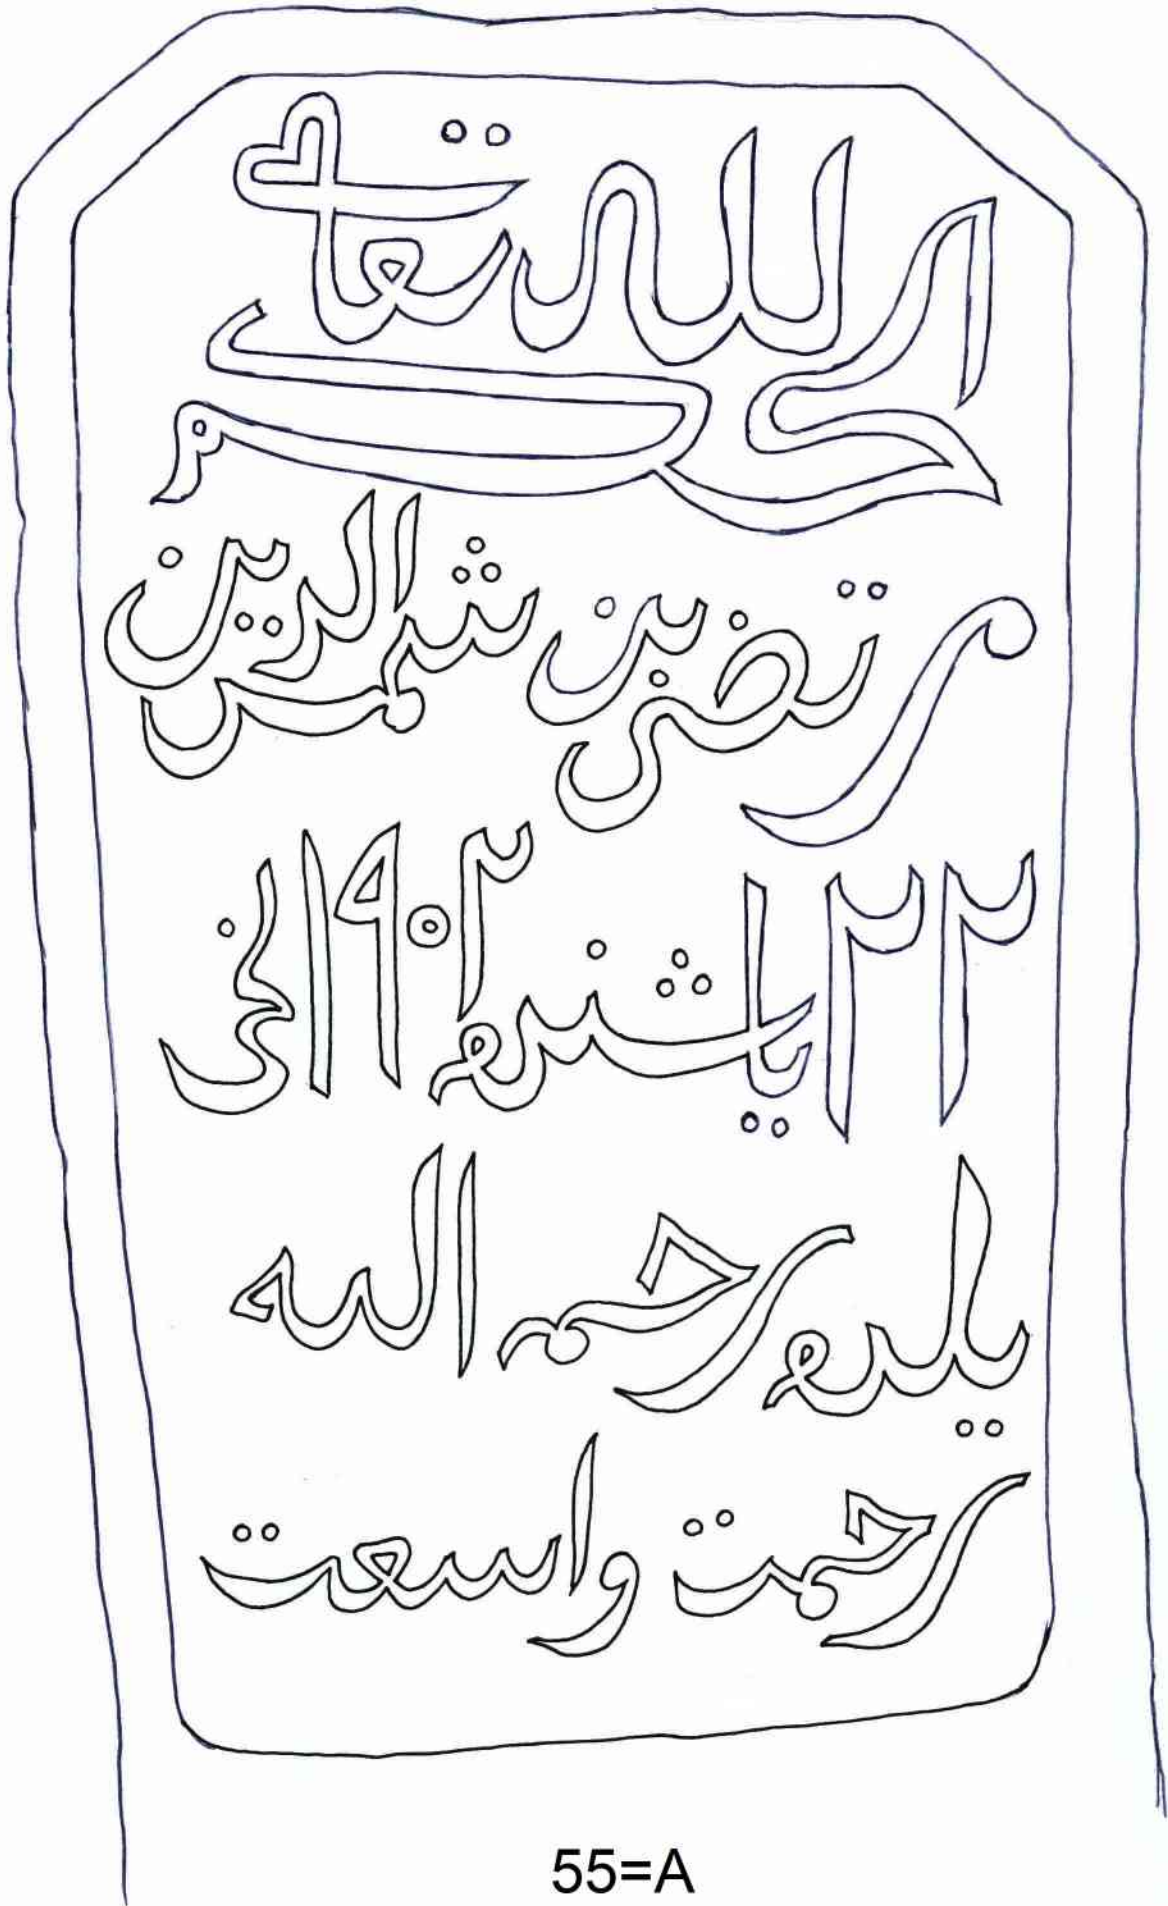 الحكم لله تعالى
مرتضى بن شمس الدين
٢٢ ياشنده ١٩٠٢ نحى
يلده رحمه الله
رحمت واسعت
55=A